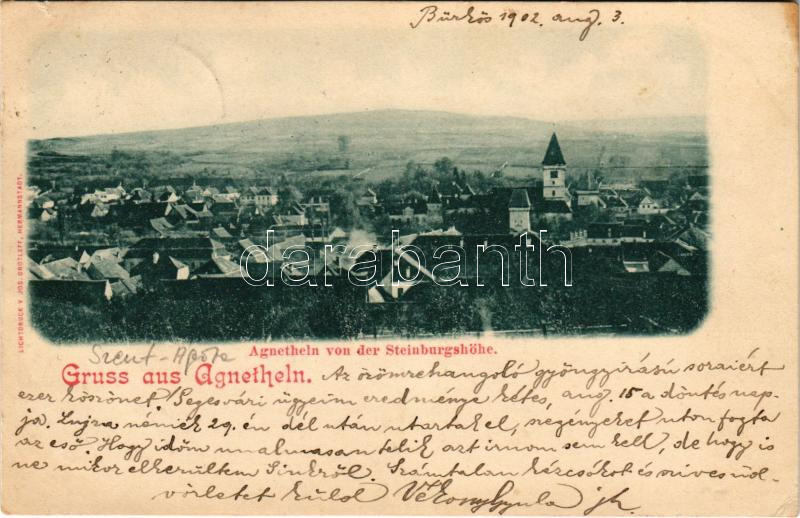 Bürkös 1902. aug. 3.
darabanth
LICHTDRUCK V. JOS. DROTLEFF, HERMANNSTADT.
Szent-Ágota
Agnetheln von der Steinburgshöhe.
Gruss aus Agnetheln.
Az örömrehangoló gyöngyírású soraiért
ezer köszönet! Segesvári ügyeim eredménye kétes, aug. 15 a döntés nap-
ja. Lujza néniék 29.én dél után utaztak el, szegényeket uton fogta
az eső. Hogy időm unalmasan telik azt irnom sem kell, de hogy is
ne mikor elkerültem Sinkről. Számtalan kézcsókot és szives üd-
vözletet küld Vékony Gyula jh.